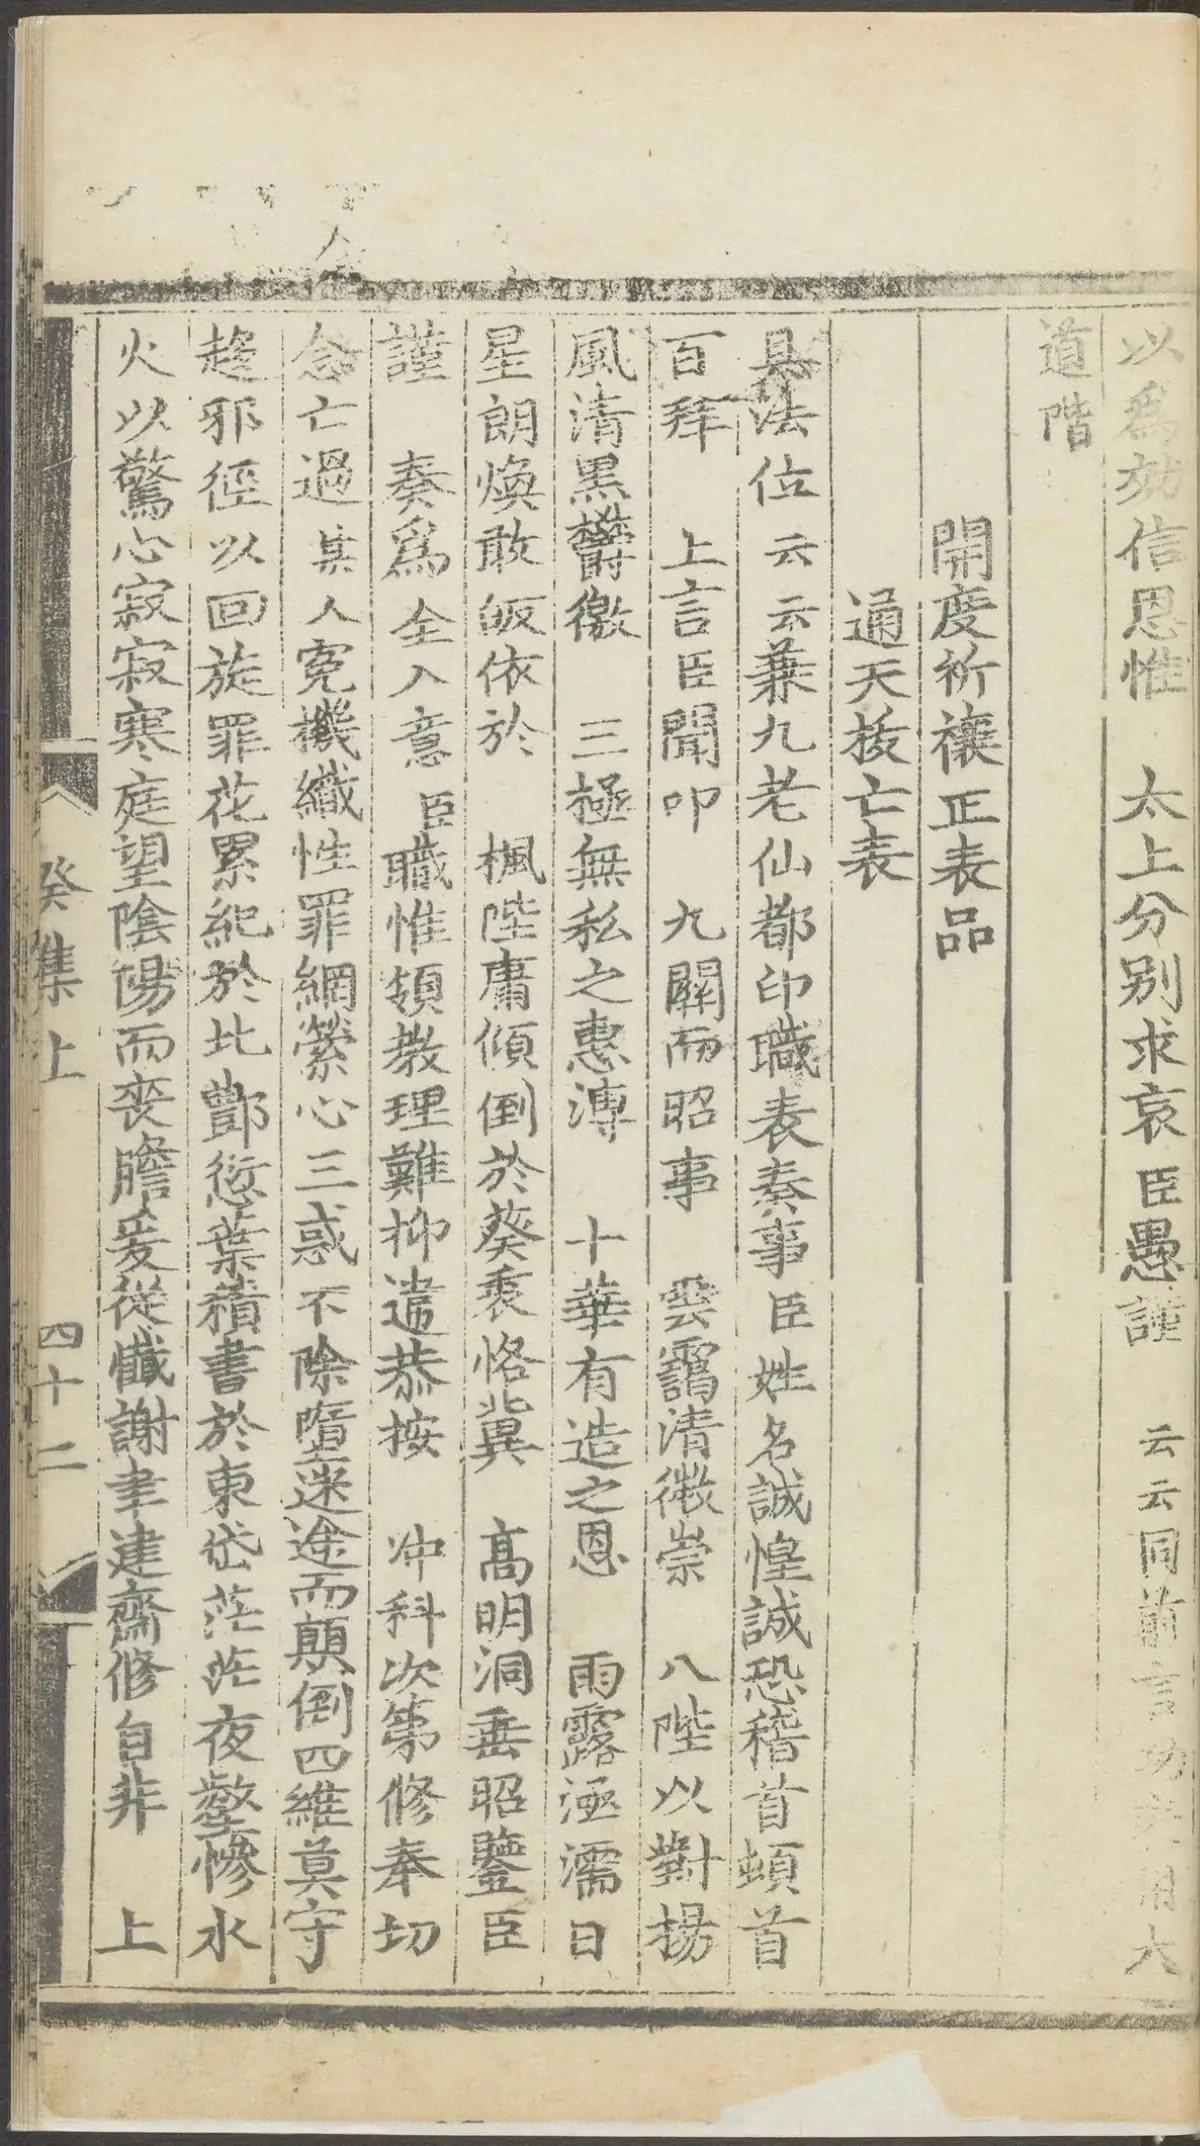 以爲効信恩惟　太上分别求哀臣愚謹　云云同前言功表用大
道階
開度祈禳正表品
通天拔亡表
具法位云云兼九老仙都印職表奏事臣姓名誠惶誠恐稽首頓首
百拜　上言臣聞叩　九關而昭事　雲靄清微崇　八陛以對揚
風清黑欝徼　三極無私之惠溥　十華有造之恩　雨露涵濡日
星朗煥敢皈依於　楓陛庸傾倒於葵衷恪冀　高明洞垂昭鑒臣
謹　奏爲全入意臣職惟領教理難抑遣恭按　冲科次第修奉切
念亡過某人寃機織性罪網縈心三惑不除墮迷途而顛倒四維莫守
趍邪徑以回旋罪花累紀於北酆愆葉積書於東岱茫茫夜壑慘水
火以驚心寂寂寒庭望陰陽而喪膽爰從懺謝聿建齋修自非　上
癸集上　四十二